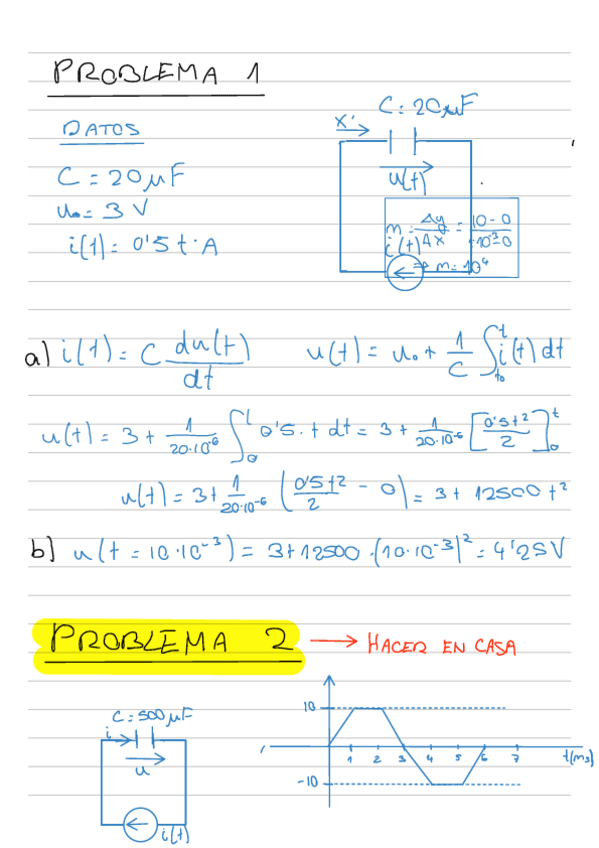 PROBLEMA 1
DATOS
C = 20μF
u₀ = 3 V
i(t) = 0'5 t · A
C = 20μF
u(t)
m = Δy/Δx = 10-0/10⁻³-0
i(t)
⇒ m = 10⁴
a) i(t) = C du(t)/dt   u(t) = u₀ + 1/C ∫ₜ₀ᵗ i(t) dt
u(t) = 3 + 1/20·10⁻⁶ ∫₀ᵗ 0'5 · t dt = 3 + 1/20·10⁻⁶ [0'5t²/2]₀ᵗ
u(t) = 3 + 1/20·10⁻⁶ (0'5t²/2 - 0) = 3 + 12500 t²
b) u(t = 10·10⁻³) = 3+12500 · (10·10⁻³)² = 4'25V
PROBLEMA 2 → HACER EN CASA
C = 500μF
i
u
i(t)
10
-10
1 2 3 4 5 6 7 t(ms)